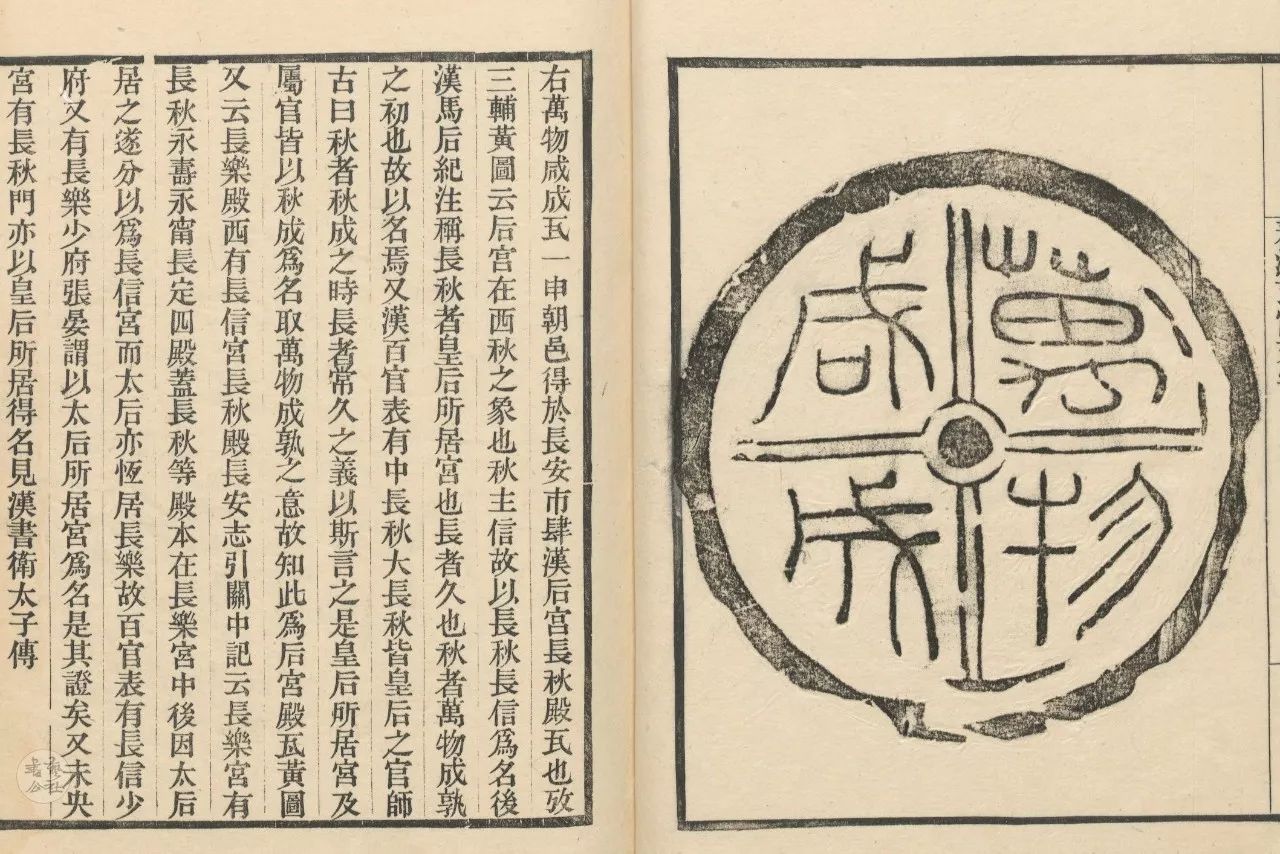 萬物
咸成
右萬物咸成瓦一申朝邑得於長安市肆漢后宮長秋殿瓦也攷
三輔黃圖云后宮在西秋之象也秋主信故以長秋長信爲名後
漢馬后紀注稱長秋者皇后所居宮也長者久也秋者萬物成孰
之初也故以名焉又漢百官表有中長秋大長秋皆皇后之官師
古曰秋者秋成之時長者常久之義以斯言之是皇后所居宮及
屬官皆以秋成爲名取萬物成孰之意故知此爲后宮殿瓦黃圖
又云長樂殿西有長信宮長秋殿長安志引關中記云長樂宮有
長秋永壽永甯長定四殿蓋長秋等殿本在長樂宮中後因太后
居之遂分以爲長信宮而太后亦恆居長樂故百官表有長信少
府又有長樂少府張晏謂以太后所居宮爲名是其證矣又未央
宮有長秋門亦以皇后所居得名見漢書衛太子傳